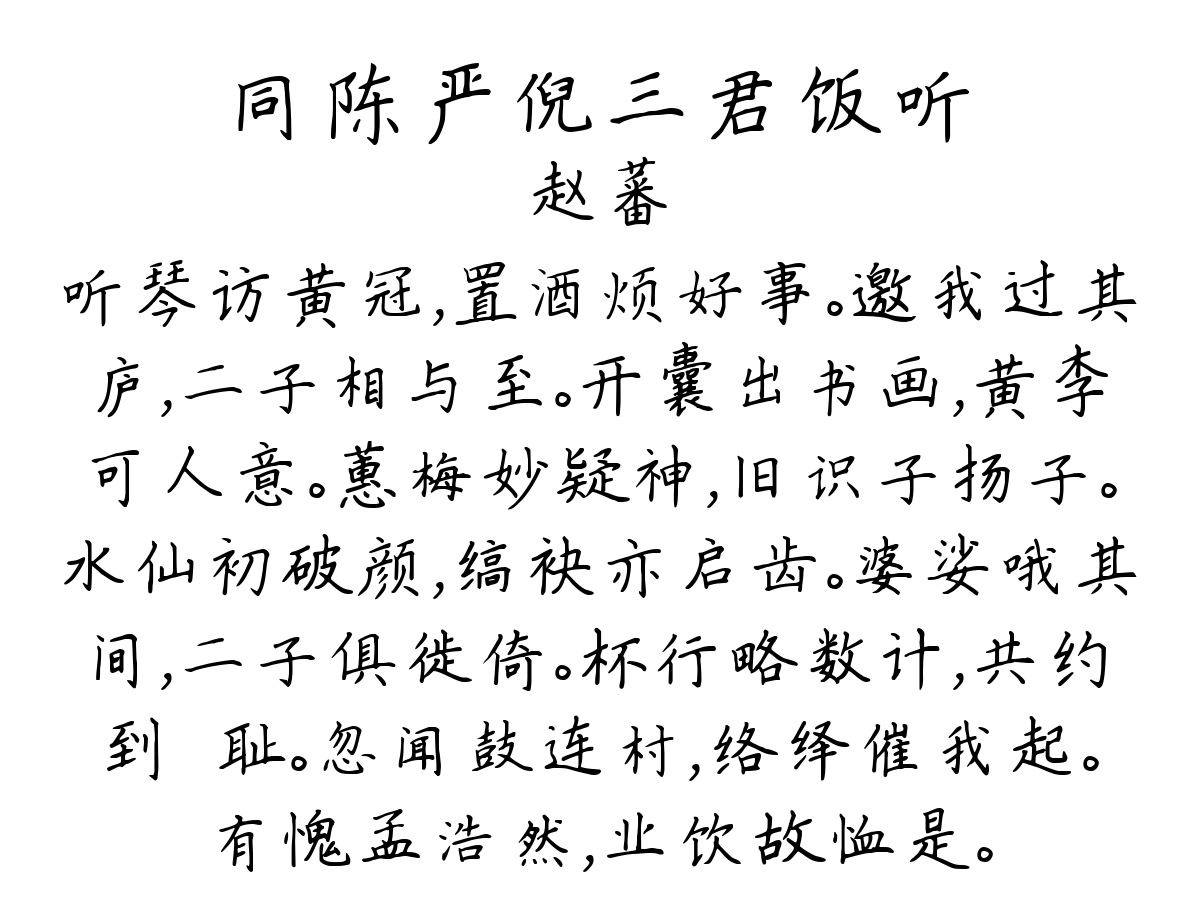 同陈严倪三君饭听
赵蕃
听琴访黄冠,置酒烦好事。邀我过其
庐,二子相与至。开囊出书画,黄李
可人意。蕙梅妙疑神,旧识子扬子。
水仙初破颜,缟袂亦启齿。婆娑哦其
间,二子俱徙倚。杯行略数计,共约
到 耻。忽闻鼓连村,络绎催我起。
有愧孟浩然,业饮故恤是。